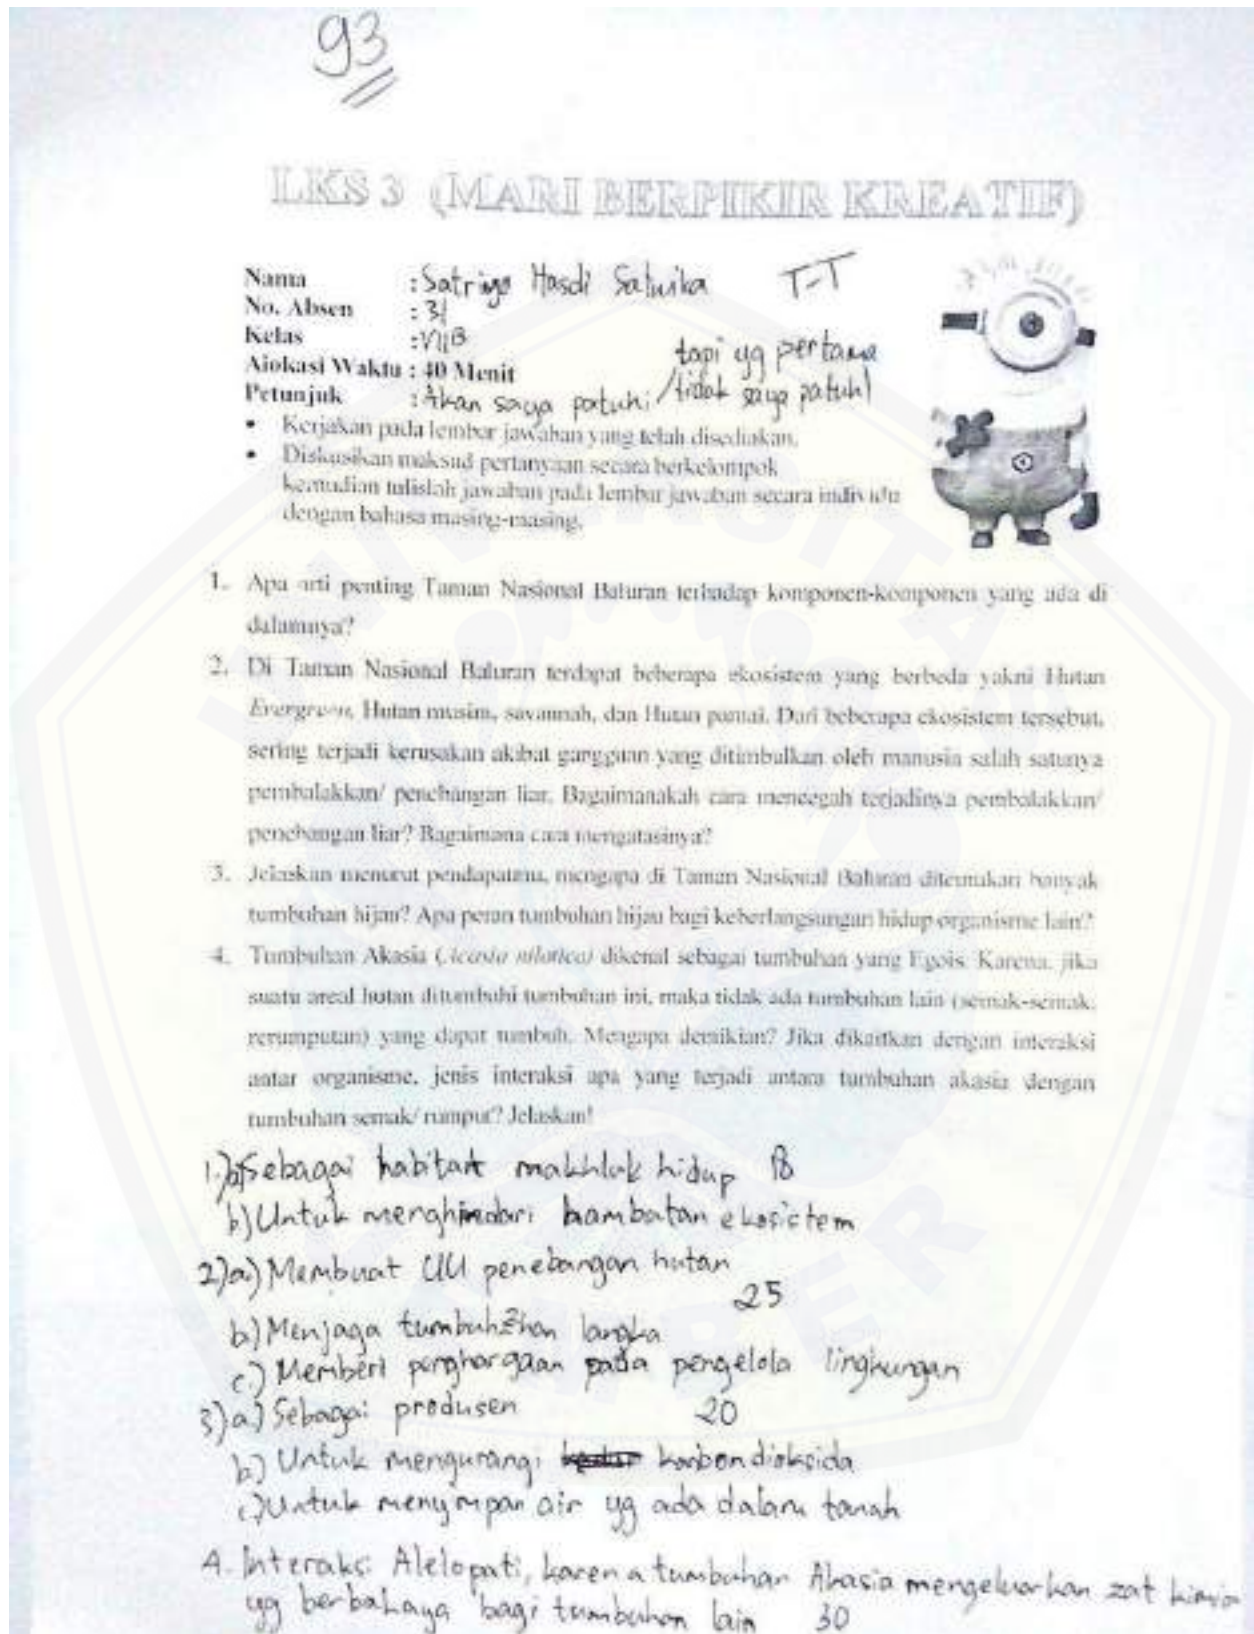 93
LKS 3 (MARI BERPIKIR KREATIF)
Nama : Satriyo Hasdi Satwika T-T
No. Absen : 31
Kelas : VIIB
Alokasi Waktu : 40 Menit
tapi yg pertama
Petunjuk : Akan saya patuhi /tidak saya patuhi
• Kerjakan pada lembar jawaban yang telah disediakan.
• Diskusikan maksud pertanyaan secara berkelompok
kemudian tulislah jawaban pada lembar jawaban secara individu
dengan bahasa masing-masing.
1. Apa arti penting Taman Nasional Baluran terhadap komponen-komponen yang ada di
dalamnya?
2. Di Taman Nasional Baluran terdapat beberapa ekosistem yang berbeda yakni Hutan
Evergreen, Hutan musim, savannah, dan Hutan pantai. Dari beberapa ekosistem tersebut,
sering terjadi kerusakan akibat gangguan yang ditimbulkan oleh manusia salah satunya
pembalakkan/ penebangan liar. Bagaimanakah cara mencegah terjadinya pembalakkan/
penebangan liar? Bagaimana cara mengatasinya?
3. Jelaskan menurut pendapatmu, mengapa di Taman Nasional Baluran ditemukan banyak
tumbuhan hijau? Apa peran tumbuhan hijau bagi keberlangsungan hidup organisme lain?
4. Tumbuhan Akasia (Acasia nilotica) dikenal sebagai tumbuhan yang Egois. Karena, jika
suatu areal hutan ditumbuhi tumbuhan ini, maka tidak ada tumbuhan lain (semak-semak,
rerumputan) yang dapat tumbuh. Mengapa demikian? Jika dikaitkan dengan interaksi
antar organisme, jenis interaksi apa yang terjadi antara tumbuhan akasia dengan
tumbuhan semak/ rumput? Jelaskan!
1.)a) Sebagai habitat makhluk hidup 18
b) Untuk menghindari hambatan ekosistem
2)a.) Membuat UU penebangan hutan
25
b.) Menjaga tumbuh2han langka
c.) Memberi penghargaan pada pengelola lingkungan
3)a.) Sebagai produsen 20
b.) Untuk mengurangi karbondioksida
c.) Untuk menyimpan air yg ada dalam tanah
4. Interaksi Alelopati, karena tumbuhan Akasia mengeluarkan zat kimia
yg berbahaya bagi tumbuhan lain 30